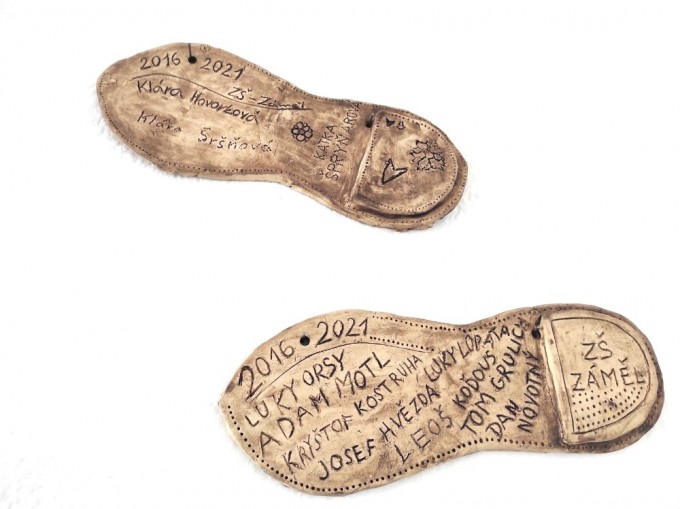 2016 2021
ZŠ Záměl
Klára Havorková
Klára Šršňová
KÁTKA
ŠPRYŇAROVÁ
2016 2021
LUKY ORSY
ADAM MOTL
KRYŠTOF KOSTRUHA
JOSEF HVĚZDA
LUKY LOPATA
LEOŠ KODOUS
TOM GRULICH
DAN NOVOTNÝ
ZŠ
ZÁMĚL